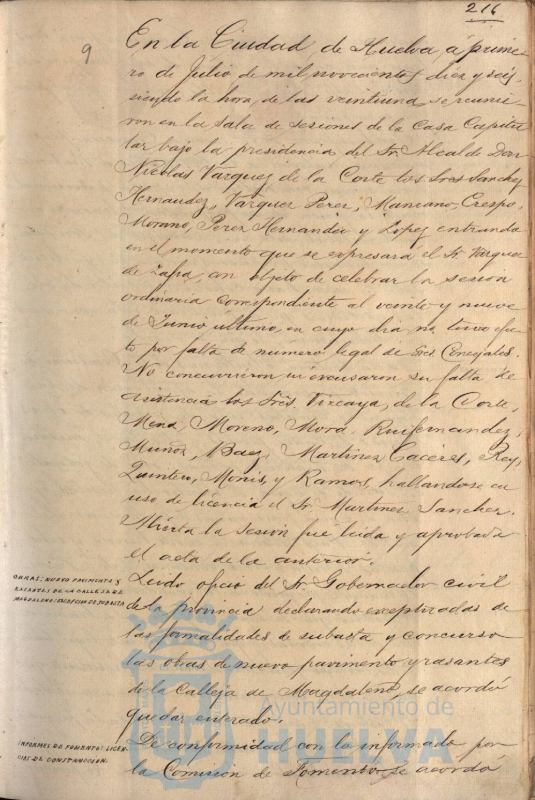 216
9
En la Ciudad de Huelva á prime-
ro de Julio de mil novecientos diez y seis,
siendo la hora, de las veintiuna se reunie-
ron en la sala de sesiones de la Casa Capitu-
lar bajo la presidencia del Sr. Alcalde Don
Nicolás Vázquez de la Corte los Sres Sanchez
Hernandez, Vazquez Perez, Manzano, Crespo,
Morano, Perez Hernandez y Lopez entrando
en el momento que se expresará el Sr. Vazquez
de Zafra, con objeto de celebrar la sesion
ordinaria correspondiente al veinte y nueve
de Junio último, en cuyo dia no tuvo efec-
to por falta de número legal de Sres Concejales.
No concurrieron ni excusaron su falta de
asistencia los Sres. Vizcaya, de la Corte,
Mena, Moreno, Mora, Ruifernandez,
Muñoz, Baez, Martinez Caceres, Rey,
Quintero, Monis, y Ramos, hallandose en
uso de licencia el Sr. Martinez Sanchez.
Abierta la sesion fué leida y aprobada
el acta de la anterior.
OBRAS: NUEVO PAVIMENTO Y
RASANTES DE LA CALLEJA DE
MAGDALENO: EXCEPCION DE SUBASTA
Leido oficio del Sr. Gobernador civil
de la provincia declarando exceptuadas de
las formalidades de subasta y concurso
las obras de nuevo pavimento y rasantes
de la Calleja de Magdaleno, se acordó
quedar enterado.
INFORMES DE FOMENTO: LICEN-
CIAS DE CONSTRUCCION.
De conformidad con lo informado por
la Comision de Fomento se acordó
Ayuntamiento de
HUELVA